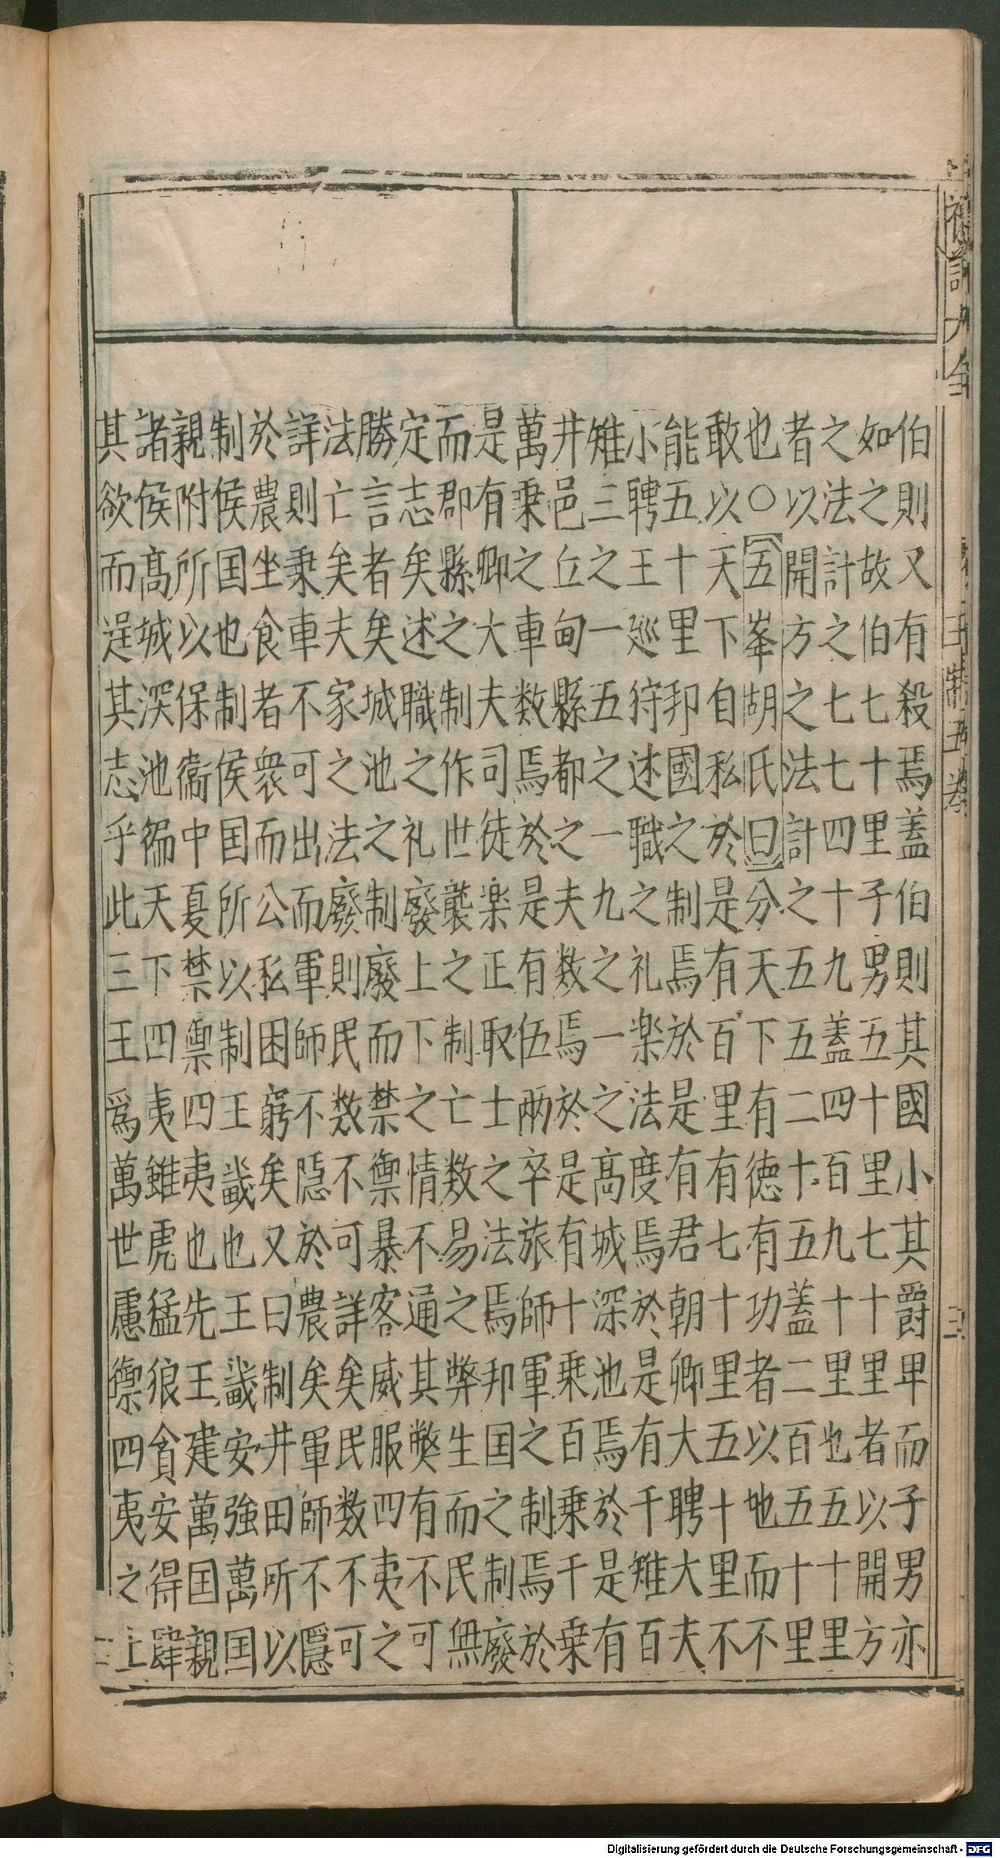 禮記大全 王制五卷 三
伯則又有殺焉蓋伯則其國小其爵卑而子男亦
如之故伯七十里子男五十里七十里者以開方
之法計之七七四十九蓋四百九十里也五十里
者以開方之法計之五五二十五蓋二百五十里
也○五峯胡氏曰分天下有德有功者以地而不
敢以天下自私於是有百里有七十里五十里不
能五十里邦國之制焉於是有君朝卿大聘大夫
小聘王廵狩述職之礼楽法度焉於是有千雉百
雉三之一五之一九之一之高城深池焉於是有
井邑丘甸縣都之夫数焉於是有十乗百乗千乗
萬乗之車数焉於是有伍兩卒旅師軍之制焉於
是有卿大夫司徒楽正取士之法焉邦国之制廢
而郡縣之制作世襲之制亡数易之弊生而民無
定志矣述職之礼廢上下之情不通其弊有不可
勝言者矣城池之制廢而禁禦暴客威服四夷之
法亡矣夫家之法廢則民数不可詳矣民数不可
詳則乗車不可出而軍師不隠於農矣軍師不隱
於農坐食者衆而公私困窮矣又曰制井田所以
制侯国也制侯国所以制王畿也王畿安強萬国
親附所以保衞中夏禁禦四夷也先王建萬国親
諸侯高城深池徧天下四夷雖虎猛狼貪安得肆
其欲而逞其志乎此三王爲萬世慮禦四夷之上
Digitalisierung gefördert durch die Deutsche Forschungsgemeinschaft - DFG